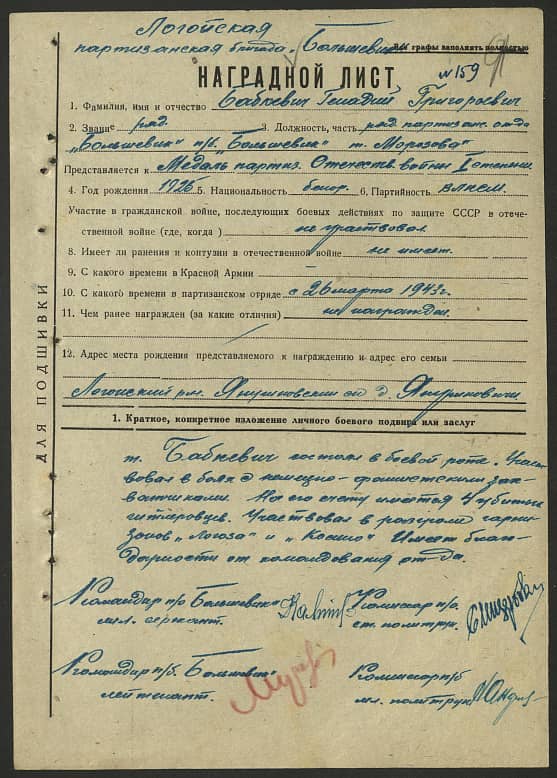 Логойская
партизанская бригада „Большевик" Все графы заполнять полностью
НАГРАДНОЙ ЛИСТ №159
1. Фамилия, имя и отчество Бабкевич Генадий Григорьевич
2. Звание ряд. 3. Должность, часть ряд. партизан. от-да
„Большевик" п/б. „Большевик" т. Морозова
Представляется к Медаль партиз. Отечеств. войны I степени
4. Год рождения 1926 5. Национальность белор. 6. Партийность влксм.
Участие в гражданской войне, последующих боевых действиях по защите СССР в отече-
ственной войне (где, когда) не участвовал
8. Имеет ли ранения и контузии в отечественной войне не имеет.
9. С какого времени в Красной Армии
10. С какого времени в партизанском отряде с 26 марта 1943 г.
11. Чем ранее награжден (за какие отличия) не награжден.
12. Адрес места рождения представляемого к награждению и адрес его семьи
Логойский р-н. Янушковский с/с д. Янушковичи
1. Краткое, конкретное изложение личного боевого подвига или заслуг
т. Бабкевич состоял в боевой роте. Участ-
вовал в боях с немецко-фашистскими зах-
ватчиками. На его счету имеется 4 убитых
гитлеровцев. Участвовал в разгроме гарни-
зонов „Логоза" и „Косино" Имеет благ-
дарности от командования от-да.
Командир п/о Большевик Комиссар п/о.
мл. сержант. ст. политрук.
Командир п/б. Больш. Комиссар п/б
лейтенант. мл. политрук
ДЛЯ ПОДШИВКИ